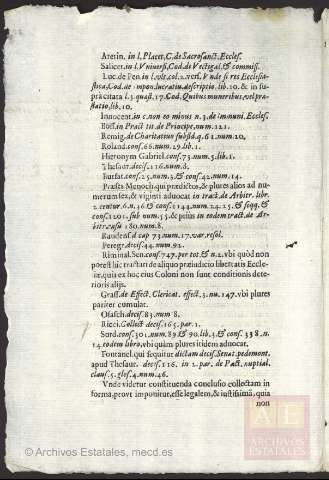 Aretin. in l. Placet, C. de Sacrosanct. Eccles.
Salicet. in l. Vniversi, Cod. de Vectigal. & commiss.
Luc. de Pen. in l. vlt. col. 2. vers. Vnde si res Ecclesia-
stica, Cod. de lucrativ. descriptio. lib. 10. & in su-
pracitata l. 3. quæst. 17. Cod. Quibus muneribus, vel præ-
statio. lib. 10.
Innocent. in c. non eo minus n. 3. de immuni. Eccles.
Boss. in Pract. tit. de Principe, num. 121.
Remig. de Charitativ. subsid. q. 61. num. 20.
Roland. cons. 66. num. 29. lib. 1.
Hieronym Gabriel. cons. 73. num. 5. lib. 1.
Thesaur. decis. 116. num. 8.
Bursat. cons. 25. num. 3. & cons. 42. num. 14.
Præses Menoch. qui prædictos, & plures alios ad nu-
merum sex, & viginti advocat in tract. de Arbitr. lib.
2. centur. 6. n. 36. & cons. 1244. num. 24. 25. & seqq. &
cons. 1201. sub num. 55. & prius in eodem tract. de Ar-
bitr. casu 180. num. 8.
Raudens. d. cap. 73. num. 17. var. resol.
Peregr. decis. 44. num. 92.
Riminal. Sen. cons. 747. per tot & n. 2. vbi quòd non
potest hîc tractari de aliquo præiudicio libertatis Eccle-
siæ, quia ex hoc eius Coloni non sunt conditionis dete-
rioris alijs.
Grass. de Effect. Clericat. effect. 3. nu. 147. vbi plures
pariter cumulat.
Osasch. decis. 83. num. 8.
Ricci. Collect. decis. 165. par. 1.
Surd. cons. 301. num. 89. & 90. lib. 3. & cons. 338. n.
14. eodem libro, vbi quàm plures itidem advocat.
Fontanel. qui sequitur dictam decis. Senat. pedemont.
apud Thesaur. decis. 116. in 2. par. de Pact. nuptial.
claus. 5. glos. 4. num. 46.
Vnde videtur constituenda conclusio collectam in
forma, prout imponitur, esse legalem, & iustissimã, quia
non
AE
ARCHIVOS
ESTATALES
© Archivos Estatales, mecd.es